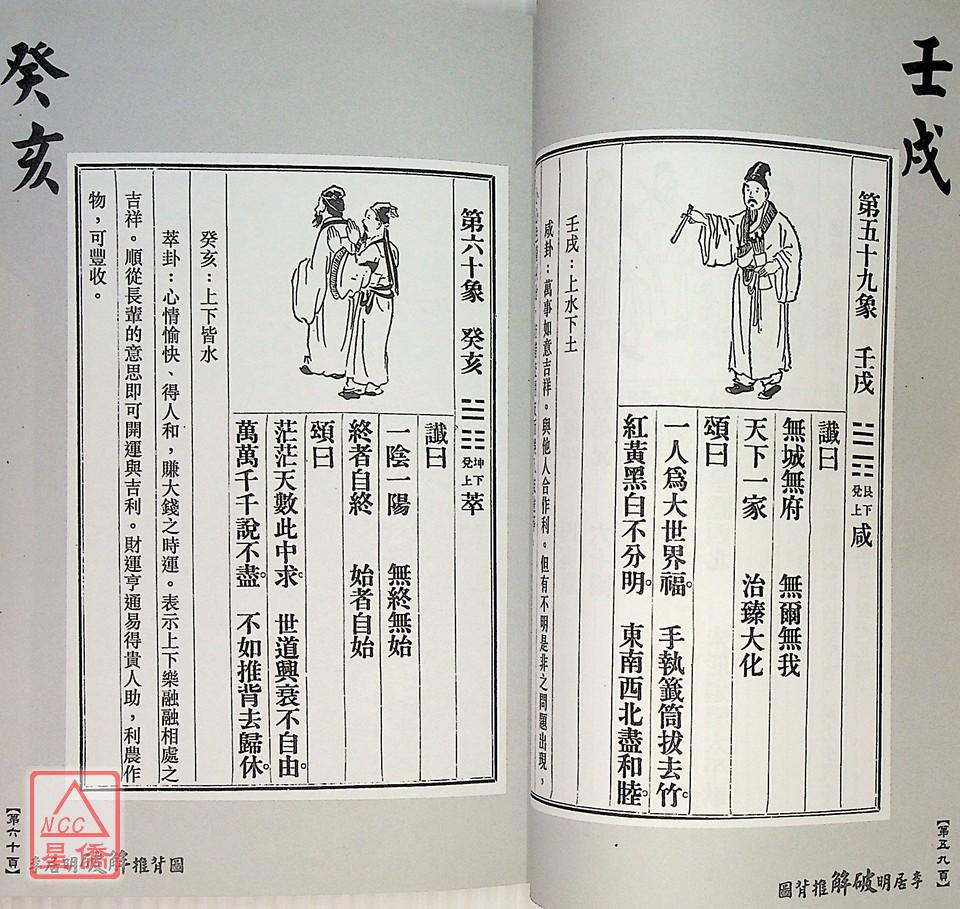 壬戌
第五十九象 壬戌 艮下兌上 咸
讖曰
無城無府 無爾無我
天下一家 治臻大化
頌曰
一人為大世界福。手執籤筒拔去竹。
紅黃黑白不分明。東南西北盡和睦。
壬戌：上水下土
咸卦：萬事如意吉祥。與他人合作利。但有不明是非之問題出現，
【第五九頁】
李居明破解推背圖
癸亥
第六十象 癸亥 坤下兌上 萃
讖曰
一陰一陽 無終無始
終者自終 始者自始
頌曰
茫茫天數此中求。世道興衰不自由。
萬萬千千說不盡。不如推背去歸休。
癸亥：上下皆水
萃卦：心情愉快、得人和，賺大錢之時運。表示上下樂融融相處之
吉祥。順從長輩的意思即可開運與吉利。財運亨通易得貴人助，利農作
物，可豐收。
【第六十頁】
李居明破解推背圖
NCC
星僑